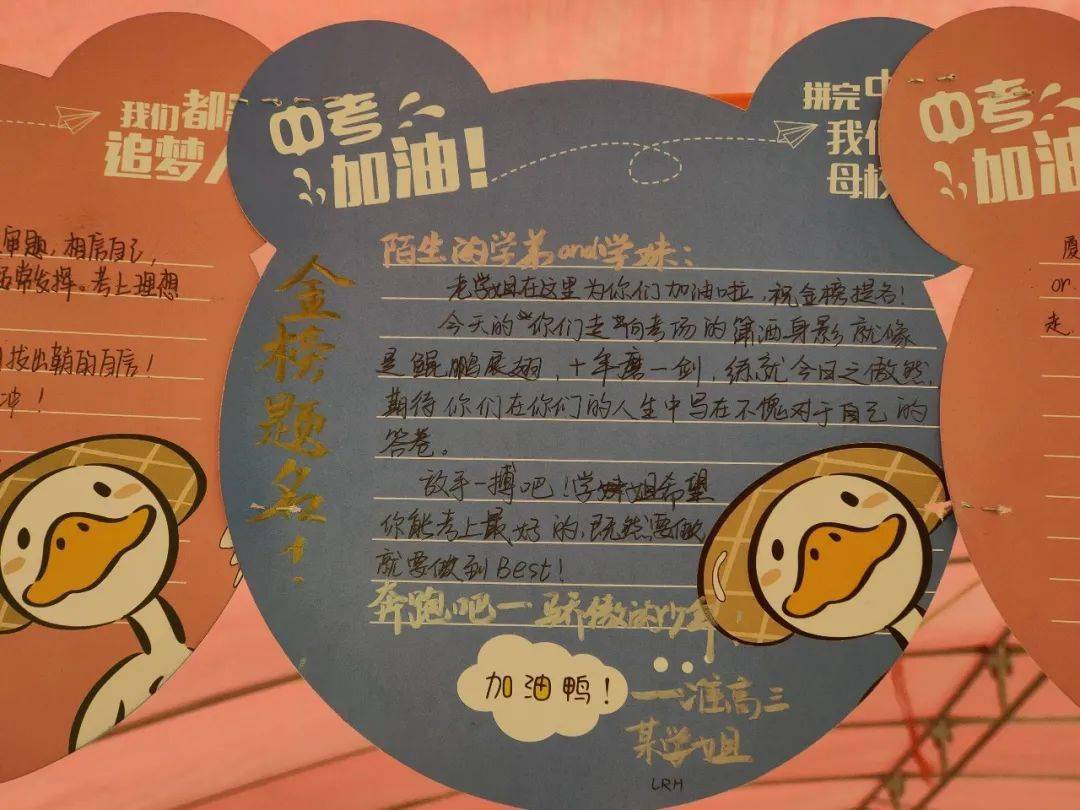 我们都
追梦
审题,相信自己,
常发挥。考上理想
拔出鞘的自信!
冲!
中考
加油!
拼完中
我们
母校
金榜题名!
陌生的学弟and学妹:
老学姐在这里为你们加油啦,祝金榜提名!
今天的“你们走”向考场的潇洒身影就像
是鲲鹏展翅,十年磨一剑,练就今日之傲然,
期待你们在你们的人生中写在不愧对于自己的
答卷。
放手一搏吧!学姐希望
你能考上最好的,既然要做
就要做到Best!
奔跑吧一骄傲的少年!
加油鸭!
——准高三
某学姐
LRH
中考
加油
or
走